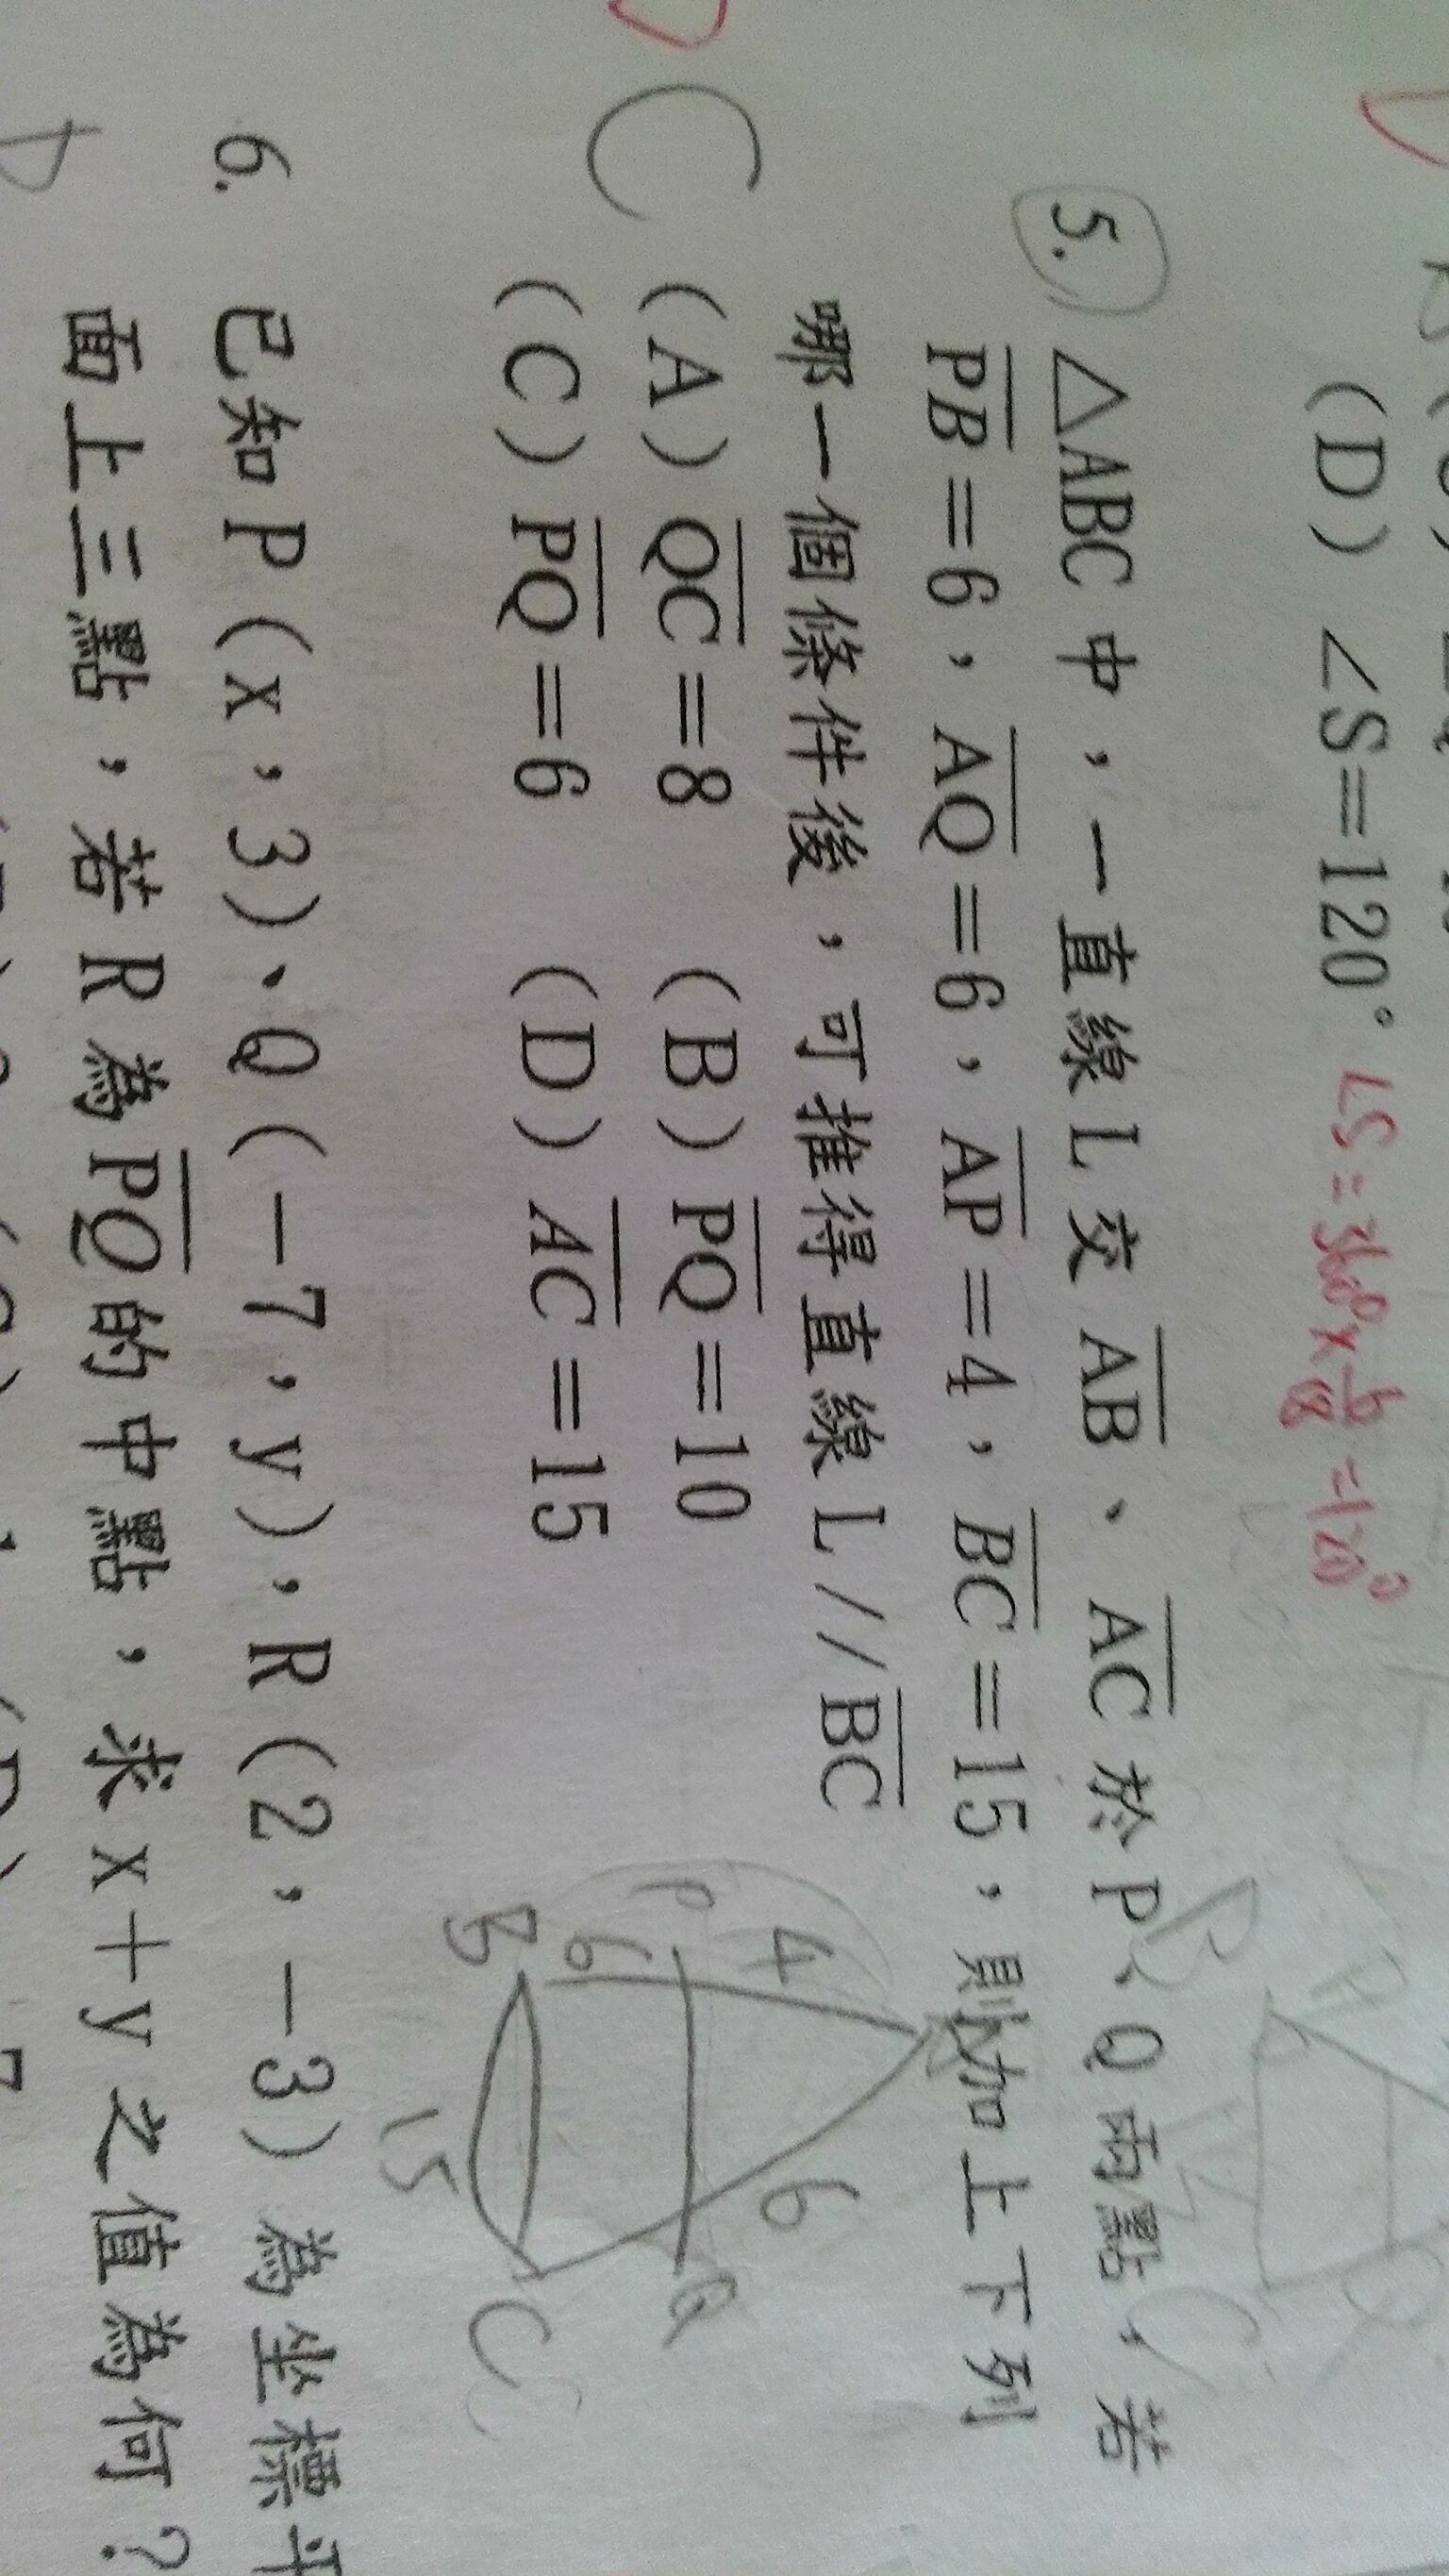 (D) ∠S=120° ∠S=360°×6/18=120°
5. △ABC 中,一直線 L 交 AB、AC 於 P、Q 兩點,若
PB=6,AQ=6,AP=4,BC=15,則加上下列
哪一個條件後,可推得直線 L//BC
C
(A) QC=8 (B) PQ=10
(C) PQ=6 (D) AC=15
P 4 6 Q
B 6 15 C
6. 已知 P(x,3)、Q(-7,y),R(2,-3)為坐標平
面上三點,若 R 為 PQ 的中點,求 x+y 之值為何?